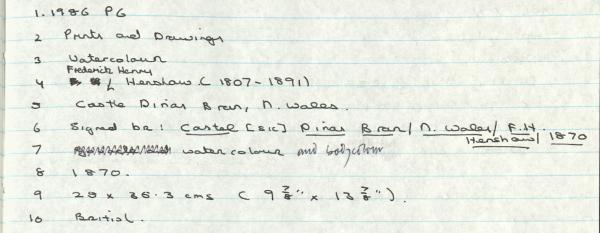 1. 1986 PG
2 Prints and Drawings
3 Watercolour
Frederick Henry
4 Henshaw (1807-1891)
5 Castle Dinas Bran, N. Wales.
6 Signed br: Castel [sic] Dinas Bran/ N. Wales/ F.H.
Henshaw/ 1870
7 watercolour and bodycolour
8 1870.
9 25 x 35.3 cms ( 9 7/8" x 13 7/8" ).
10 British.